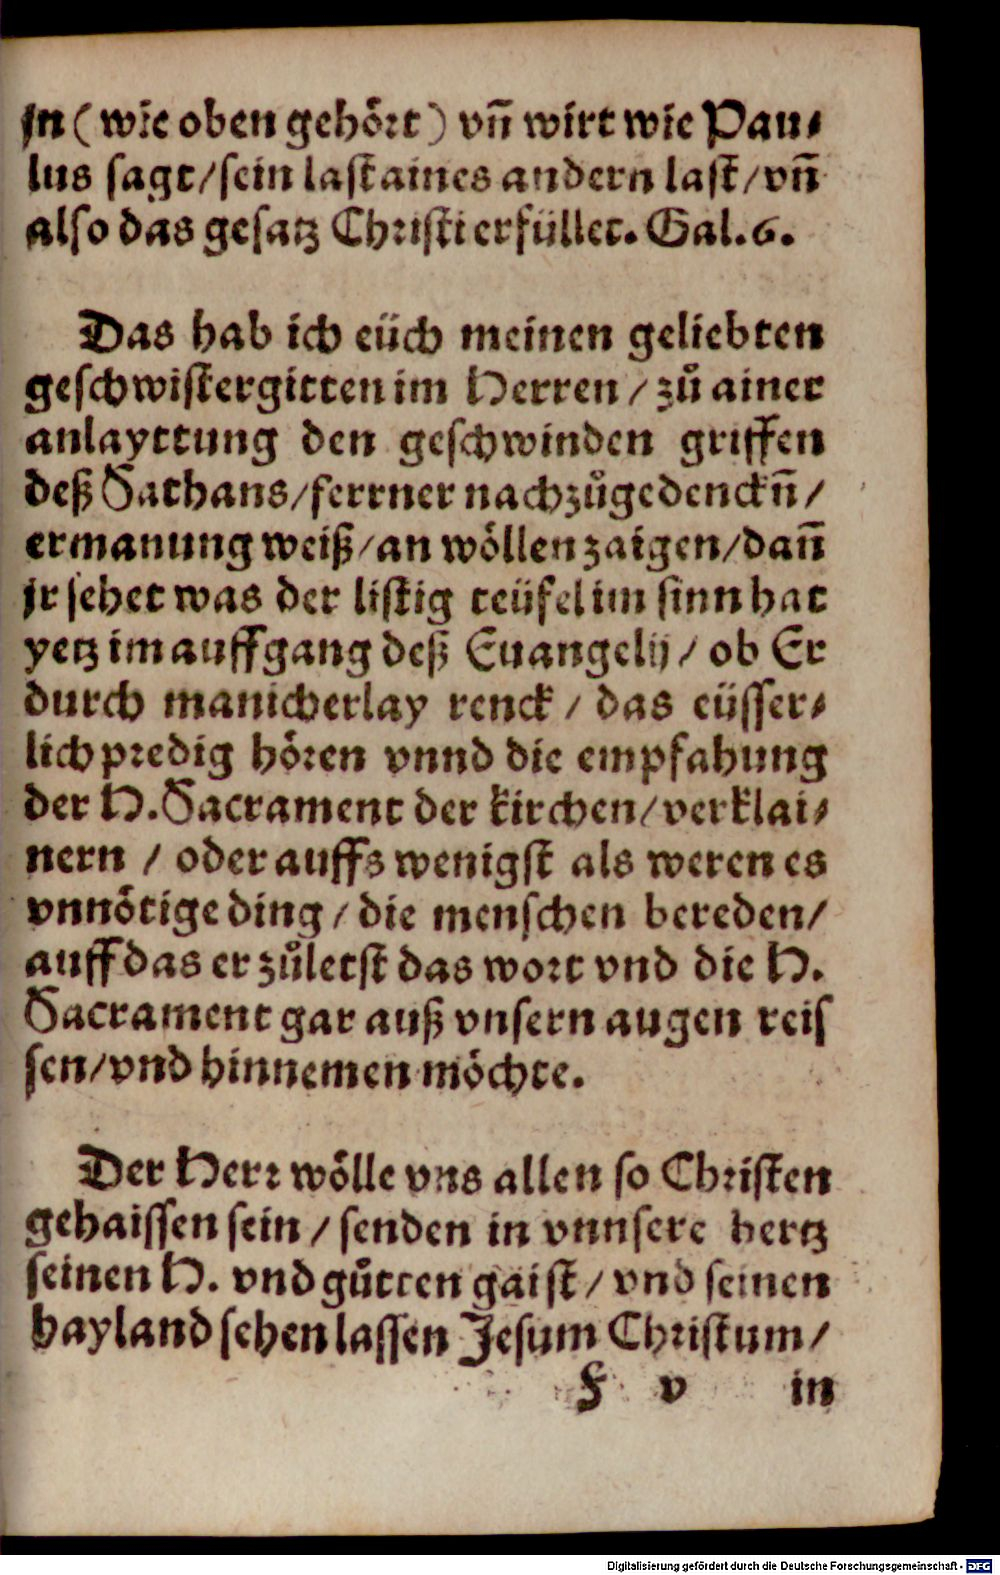 jn (wie oben gehört) vñ wirt wie Pau⸗
lus sagt/sein last aines andern last/vñ
also das gesatz Christi erfüllet. Gal. 6.
Das hab ich eüch meinen geliebten
geschwistergitten im Herren / zů ainer
anlayttung den geschwinden griffen
deß Sathans/ferrner nachzůgedenckñ/
ermanung weiß/an wöllen zaigen/dañ
jr sehet was der listig teüfel im sinn hat
yetz im auffgang deß Euangelij / ob Er
durch manicherlay renck / das eüsser⸗
lich predig hören vnnd die empfahung
der H. Sacrament der kirchen/verklai⸗
nern / oder auffs wenigst als weren es
vnnötige ding / die menschen bereden/
auff das er zůletst das wort vnd die H.
Sacrament gar auß vnsern augen reis
sen/vnd hinnemen möchte.
Der Herr wölle vns allen so Christen
gehaissen sein / senden in vnnsere hertz
seinen H. vnd gůtten gaist / vnd seinen
hayland sehen lassen Jesum Christum/
F v in
Digitalisierung gefördert durch die Deutsche Forschungsgemeinschaft - DFG